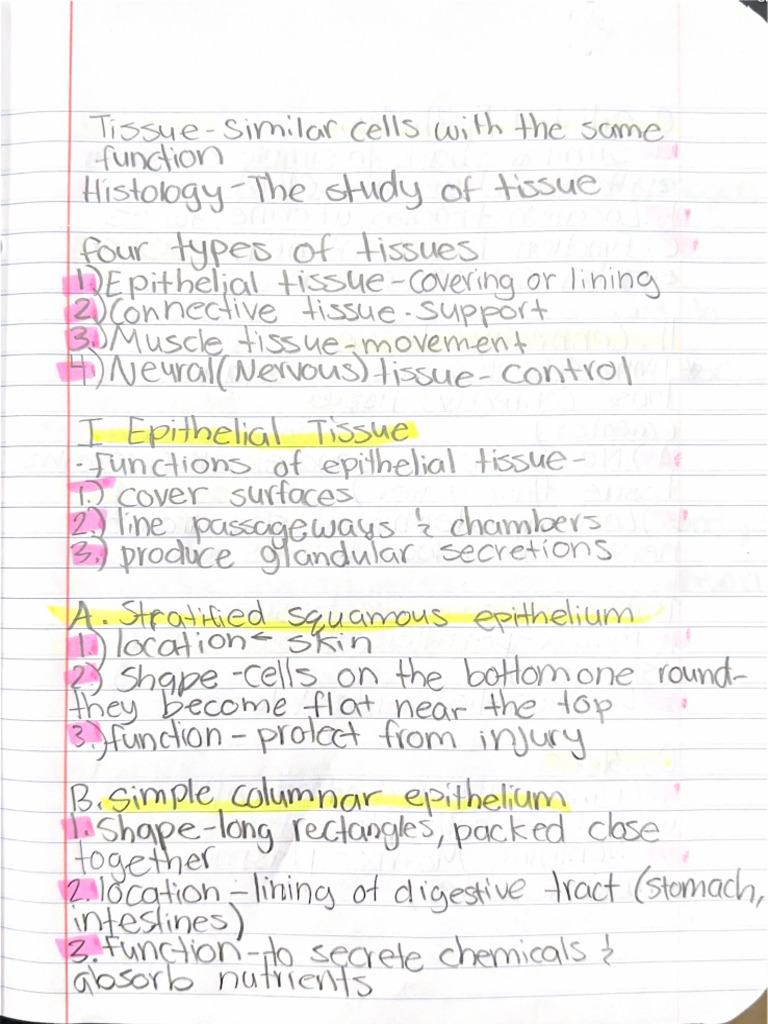 Tissue - similar cells with the same
function
Histology - The study of tissue
four types of tissues
1.) Epithelial tissue - covering or lining
2.) Connective tissue - support
3.) Muscle tissue - movement
4.) Neural (Nervous) tissue - control
I Epithelial Tissue
- functions of epithelial tissue -
1.) cover surfaces
2.) line passageways & chambers
3.) produce glandular secretions
A. Stratified squamous epithelium
1.) location - skin
2.) shape - cells on the bottom one round -
they become flat near the top
3.) function - protect from injury
B. Simple columnar epithelium
1. Shape - long rectangles, packed close
together
2. location - lining of digestive tract (stomach,
intestines)
3. function - to secrete chemicals &
absorb nutrients